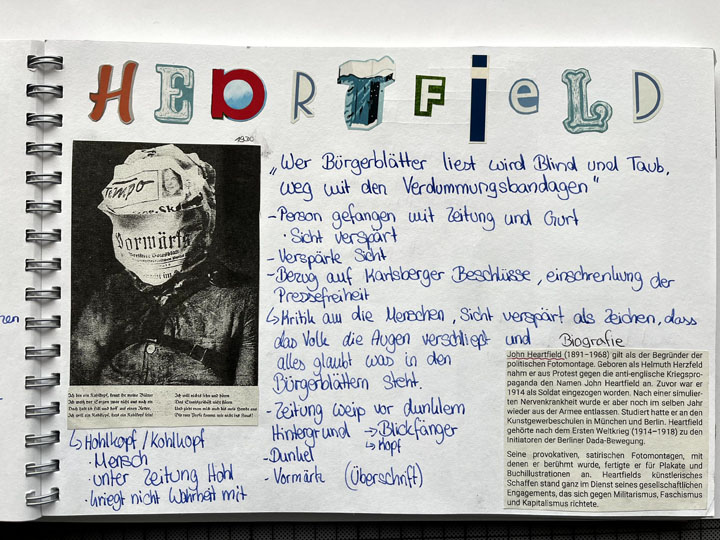 HEARTFIELD
1930
„Wer Bürgerblätter liest wird Blind und Taub,
weg mit den Verdummungsbandagen"
- Person gefangen mit Zeitung und Gurt
· Sicht verspärt
- Verspärte Sicht
- Bezug auf Karlsberger Beschlüsse, einschrenkung der
Pressefreiheit
↳ Kritik an die Menschen, Sicht verspärt als Zeichen, dass
das Volk die Augen verschließt und
alles glaubt was in den
Bürgerblättern steht.
- Zeitung weiß vor dunklem
Hintergrund → Blickfänger
↳ Kopf
- Dunkel
- Vormärts (Überschrift)
Tempo
Vorwärts
Ich bin ein Kohlkopf, kennt ihr meine Blätter
↳ Hohlkopf / Kohlkopf
· Mensch
· unter Zeitung Hohl
· kriegt nicht Wahrheit mit
Biografie
John Heartfield (1891–1968) gilt als der Begründer der
politischen Fotomontage. Geboren als Helmuth Herzfeld
nahm er aus Protest gegen die anti-englische Kriegspro-
paganda den Namen John Heartfield an. Zuvor war er
1914 als Soldat eingezogen worden. Nach einer simulier-
ten Nervenkrankheit wurde er aber noch im selben Jahr
wieder aus der Armee entlassen. Studiert hatte er an den
Kunstgewerbeschulen in München und Berlin. Heartfield
gehörte nach dem Ersten Weltkrieg (1914–1918) zu den
Initiatoren der Berliner Dada-Bewegung.
Seine provokativen, satirischen Fotomontagen, mit
denen er berühmt wurde, fertigte er für Plakate und
Buchillustrationen an. Heartfields künstlerisches
Schaffen stand ganz im Dienst seines gesellschaftlichen
Engagements, das sich gegen Militarismus, Faschismus
und Kapitalismus richtete.